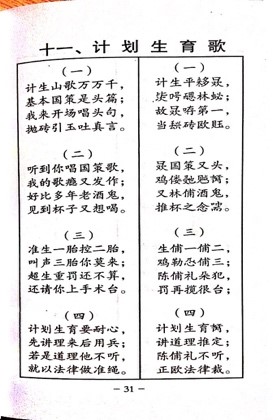 十一、计划生育歌
（一）
计生山歌万万千，
基本国策是头篇；
我来开场唱头句，
抛砖引玉吐真言。
（二）
听到你唱国策歌，
我的歌瘾又发作；
好比多年老酒鬼，
见到杯子又想喝。
（三）
准生一胎控二胎，
叫声三胎你莫来；
超生重罚还不算，
还请你上手术台。
（四）
计划生育要耐心，
先讲理来后用兵；
若是道理他不听，
就以法律做准绳。
（一）
计生平
第一，
当
（二）
国策又头，
又林俌酒鬼，
推杯之念
（三）
生俌一俌二，
鸡勒怎俌三；
陈俌礼朵犯，
罚再搅很台；
（四）
计划生育
讲道理推定；
陈俌礼不听，
正欧法律裁。
－31－